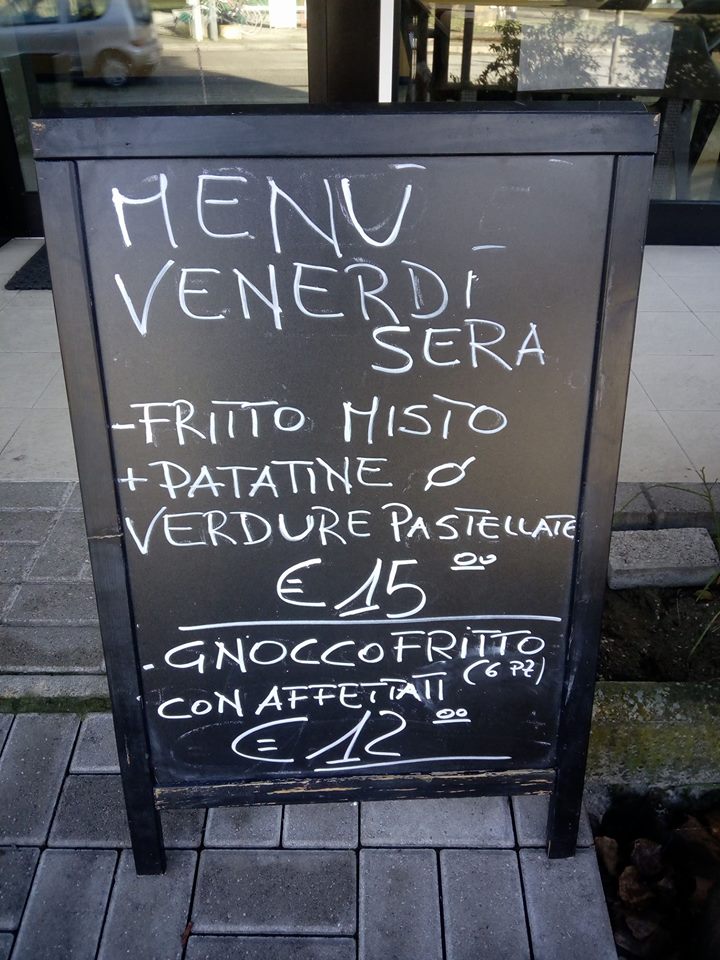 MENÙ
VENERDÌ
SERA
-FRITTO MISTO
+PATATINE O
VERDURE PASTELLATE
€ 15 00
-GNOCCO FRITTO
(6 PZ)
CON AFFETTATI
€ 12 00